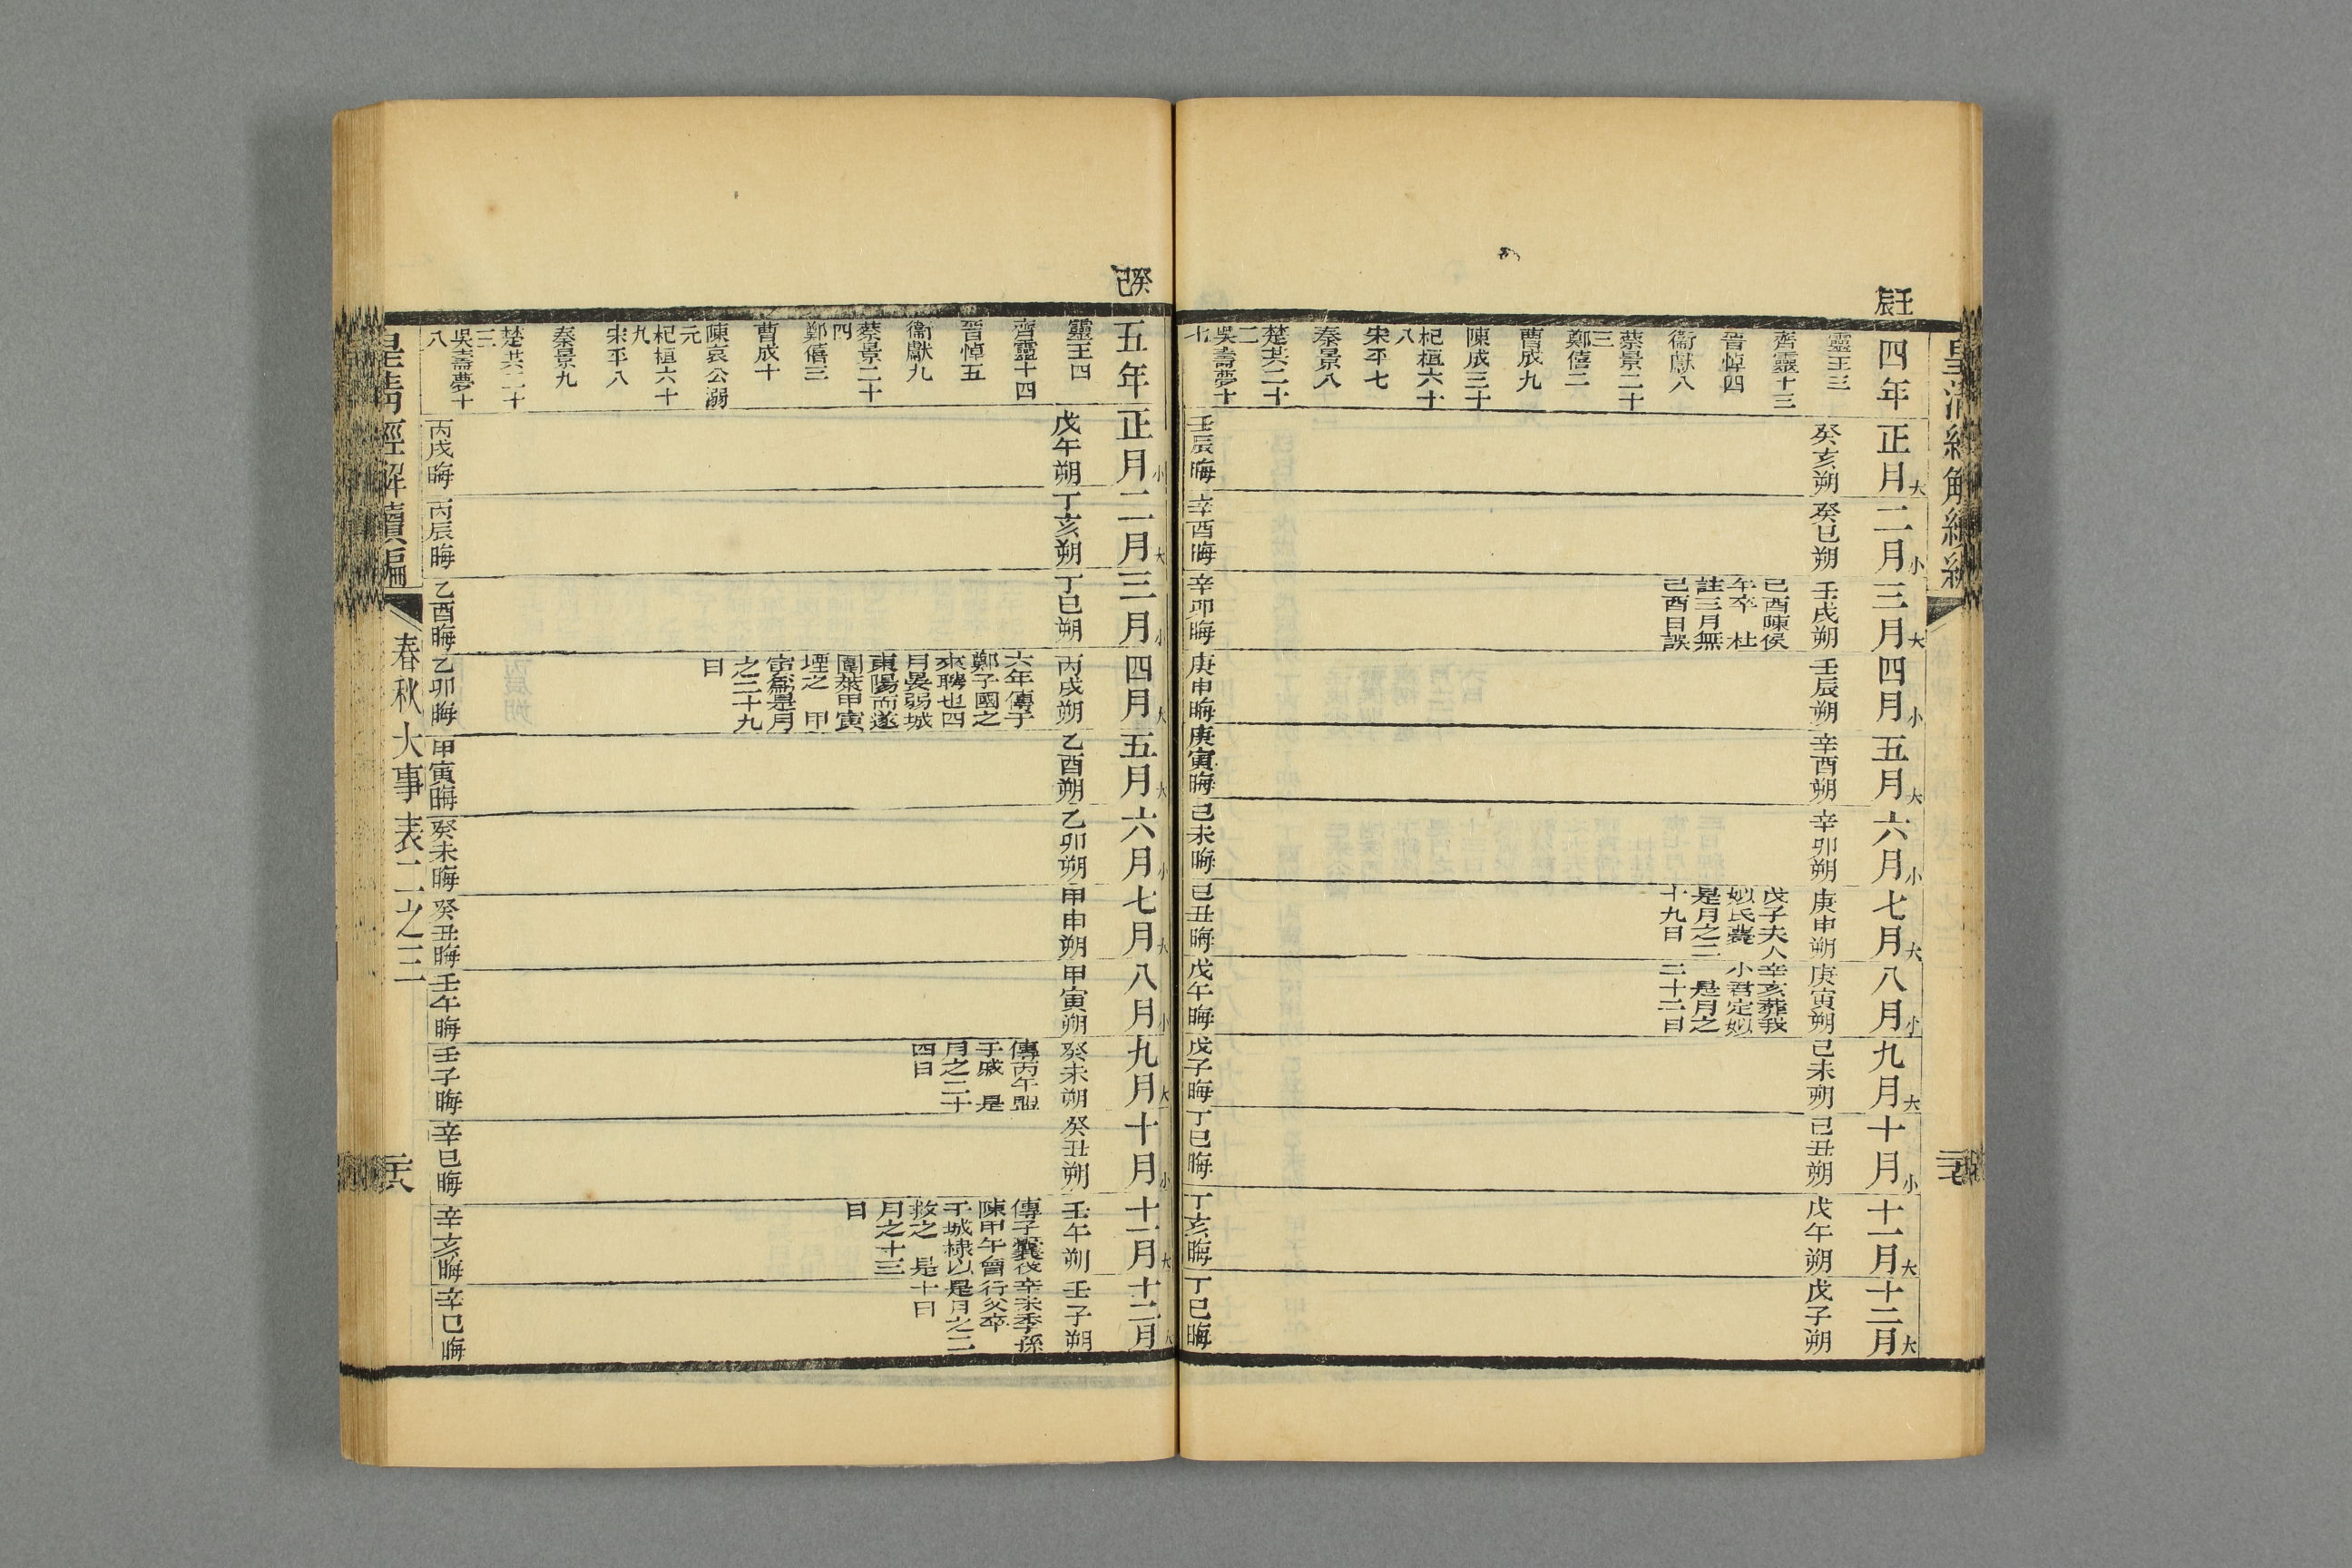 皇清經解續編
壬辰
四年
正月大
二月小
三月大
四月小
五月大
六月小
七月大
八月小
九月大
十月小
十一月大
十二月大
靈王三
癸亥朔
癸巳朔
壬戌朔
壬辰朔
辛酉朔
辛卯朔
庚申朔
庚寅朔
己未朔
己丑朔
戊午朔
戊子朔
齊靈十三
晉悼四
衞獻八
蔡景二十
三
鄭僖二
曹成九
陳成三十
杞桓六十
八
宋平七
秦景八
楚共二十
二
吳壽夢十
七
己酉陳侯
午卒 杜
註三月無
己酉日誤
戊子夫人
姒氏薨
是月之二
十九日
辛亥葬我
小君定姒
是月之
二十二日
壬辰晦
辛酉晦
辛卯晦
庚申晦
庚寅晦
己未晦
己丑晦
戊午晦
戊子晦
丁巳晦
丁亥晦
丁巳晦
癸巳
五年
正月小
二月大
三月小
四月大
五月大
六月小
七月大
八月小
九月大
十月小
十一月大
十二月大
靈王四
戊午朔
丁亥朔
丁巳朔
丙戌朔
乙酉朔
乙卯朔
甲申朔
甲寅朔
癸未朔
癸丑朔
壬午朔
壬子朔
齊靈十四
晉悼五
衞獻九
蔡景二十
四
鄭僖三
曹成十
陳哀公溺
元
杞桓六十
九
宋平八
秦景九
楚共二十
三
吳壽夢十
八
六年傳于
鄭子國之
來聘也四
月晏弱城
東陽而遂
圍萊甲寅
堙之 甲
寅爲是月
之二十九
日
傳丙午盟
于戚 是
月之二十
四日
傳子囊伐
陳甲午會
于城棣以
救之 是
月之十三
日
辛未季孫
行父卒
是月之二
十日
丙戌晦
丙辰晦
乙酉晦
乙卯晦
甲寅晦
癸未晦
癸丑晦
壬午晦
壬子晦
辛巳晦
辛亥晦
辛巳晦
皇清經解續編
春秋大事表二之三
二十八